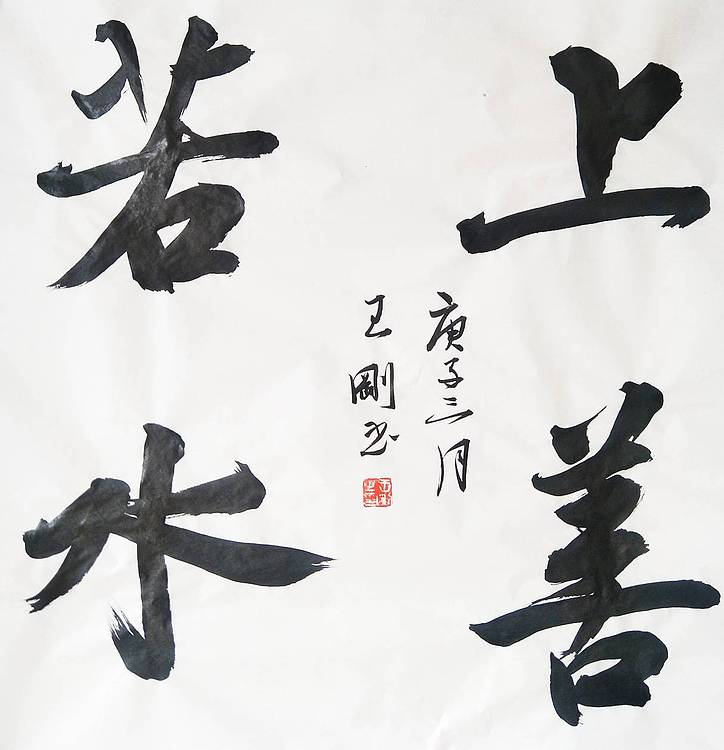 上善
若水
庚子三月
王剛书